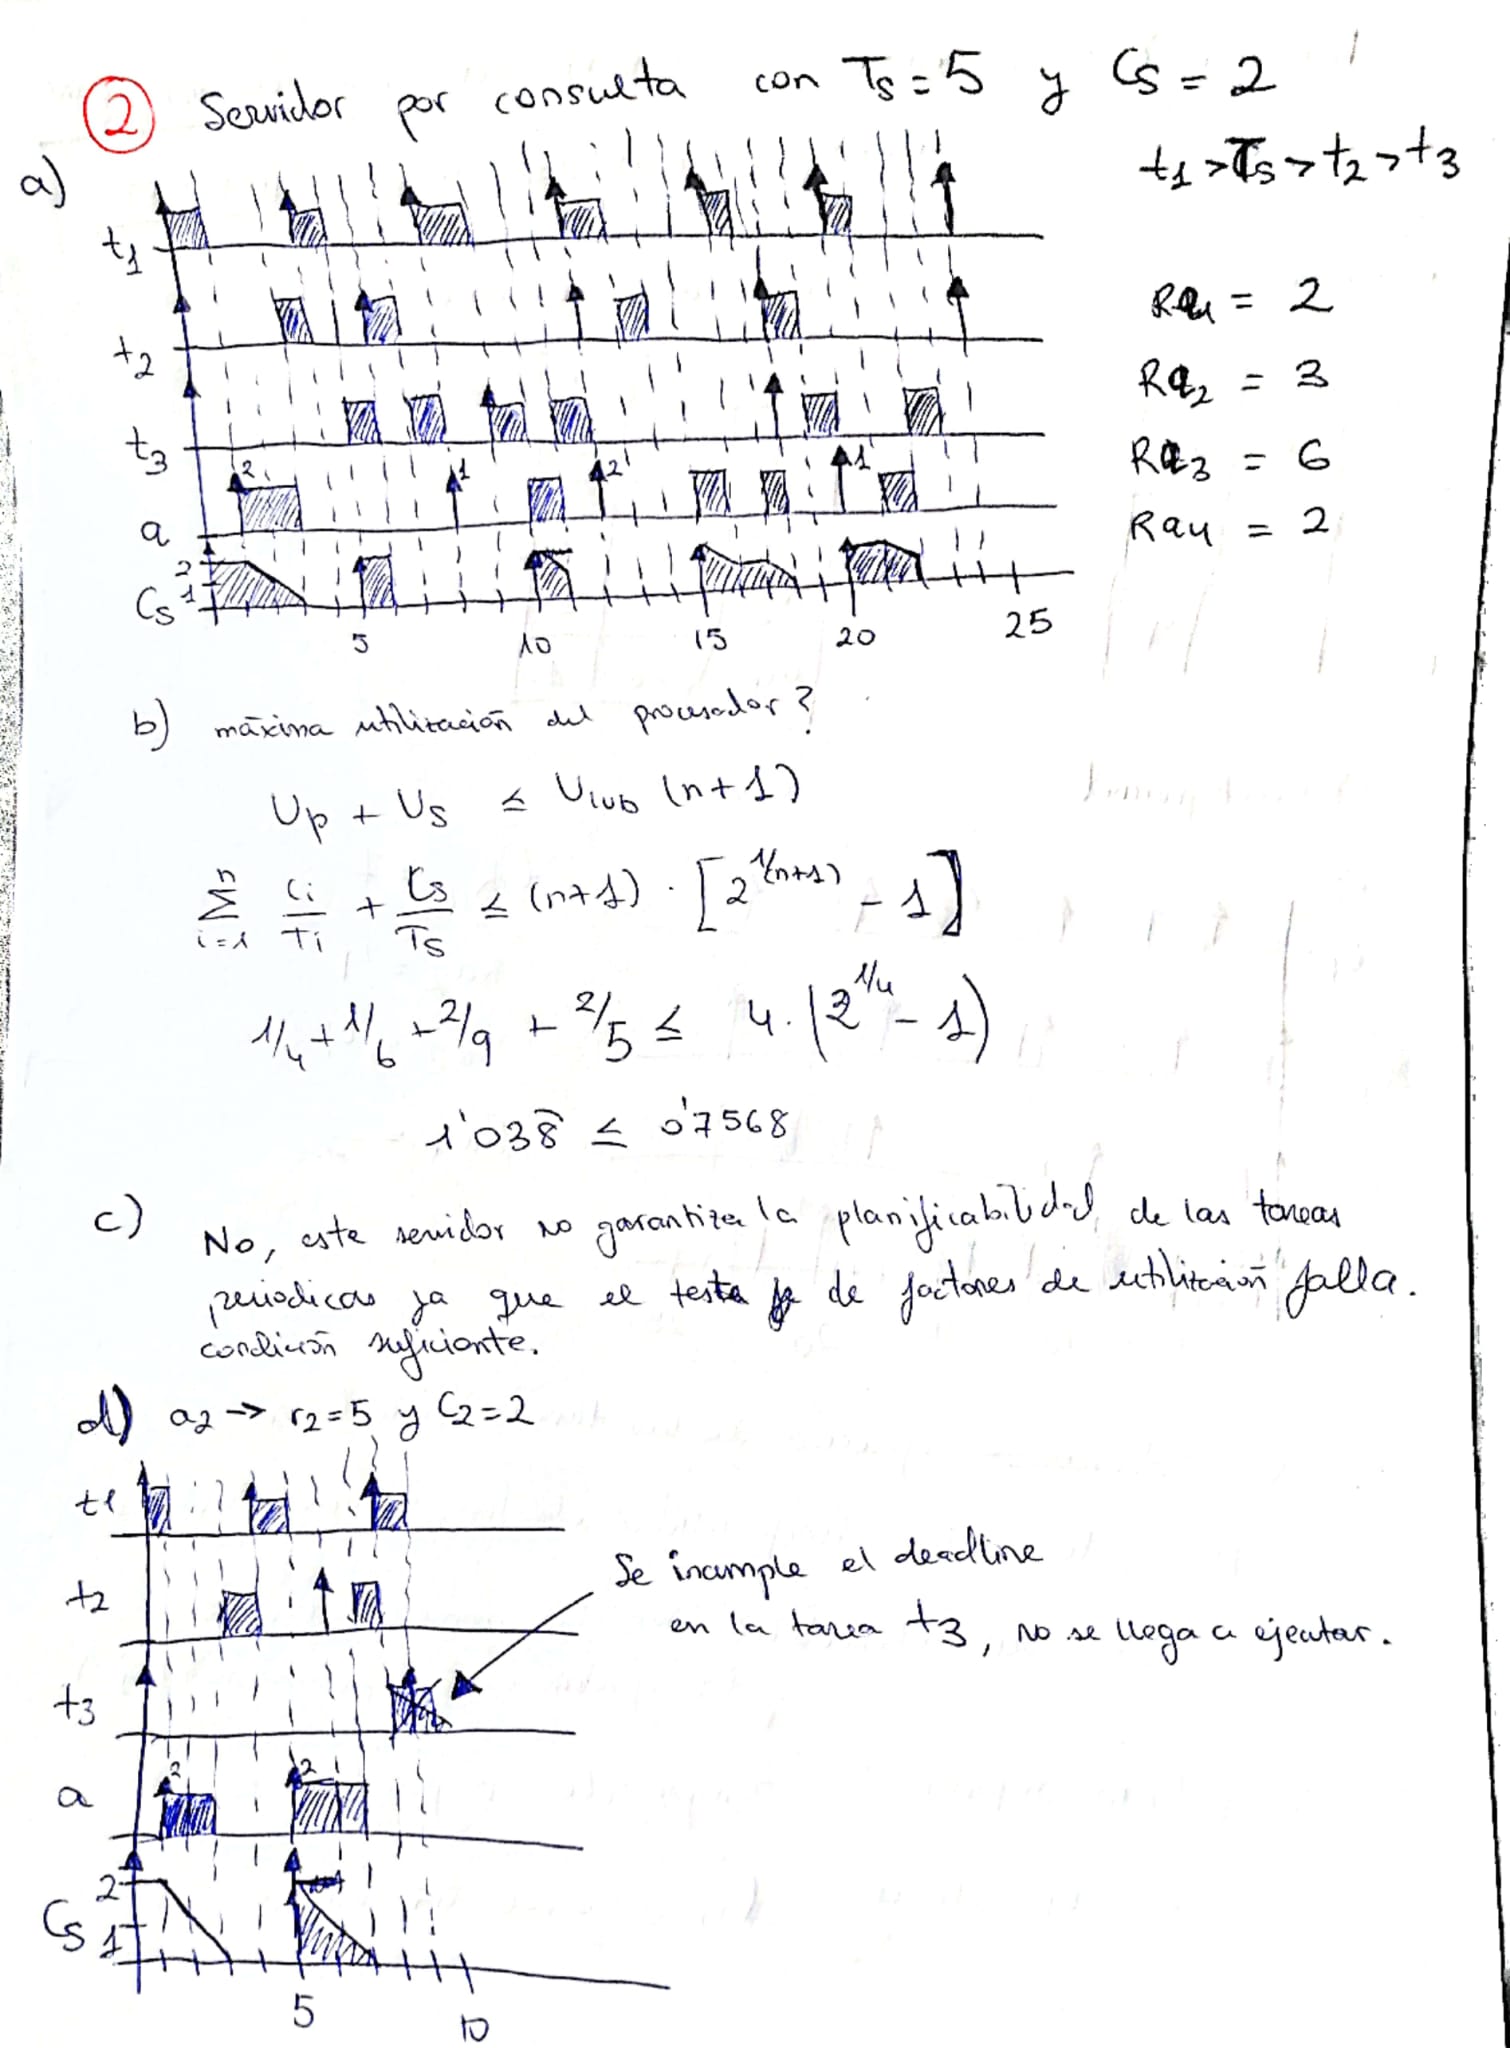 2 Servidor por consulta con Ts = 5 y Cs = 2
a)
t1 > Ts > t2 > t3
t1
t2
t3
2 1 2 1
a
2
1
Cs
5 10 15 20 25
Ra1 = 2
Ra2 = 3
Ra3 = 6
Ra4 = 2
b) máxima utilización del procesador?
Up + Us ≤ Ulub (n+1)
n
Σ Ci/Ti + Cs/Ts ≤ (n+1) · [2^1/(n+1) - 1]
i=1
1/4 + 1/6 + 2/9 + 2/5 ≤ 4 · (2^1/4 - 1)
1'038 ≤ 0'7568
c) No, este servidor no garantiza la planificabilidad de las tareas
periodicas ya que el test de factores de utilización falla.
condición suficiente.
d) a2 -> r2=5 y C2=2
t1
t2
t3
2 2
a
2
1
Cs
5 10
Se incumple el deadline
en la tarea t3, no se llega a ejecutar.